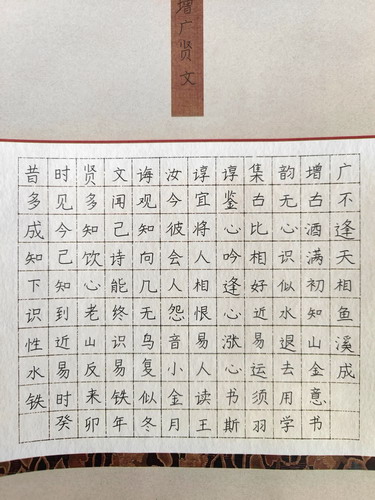 增广贤文
昔时贤文诲汝谆谆集韵增广
多见多闻观今宜鉴古无古不
成今知己知彼将心比心酒逢
知己饮诗向会人吟相识满天
下知心能几人相逢好似初相
识到老终无怨恨心近水知鱼
性近山识鸟音易涨易退山溪
水易反易复小人心运去金成
铁时来铁似金读书须用意
癸卯年冬月王斯羽学书